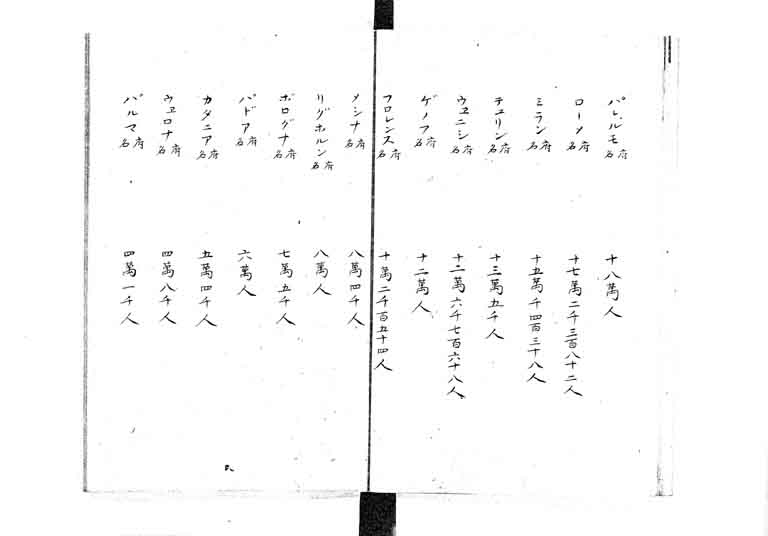 パレルモ府名 十八萬人
ローメ府名 十七萬二千三百八十二人
ミラン府名 十五萬千四百三十八人
チュリン府名 十三萬五千人
ウヱニシ府名 十二萬六千七百六十八人
ゲノフ府名 十二萬人
フロレンス府名 十萬二千百五十四人
メシナ府名 八萬四千人
リグホルン府名 八萬人
ボログナ府名 七萬五千人
パドア府名 六萬人
カタニア府名 五萬四千人
ウヱロナ府名 四萬八千人
パルマ府名 四萬一千人